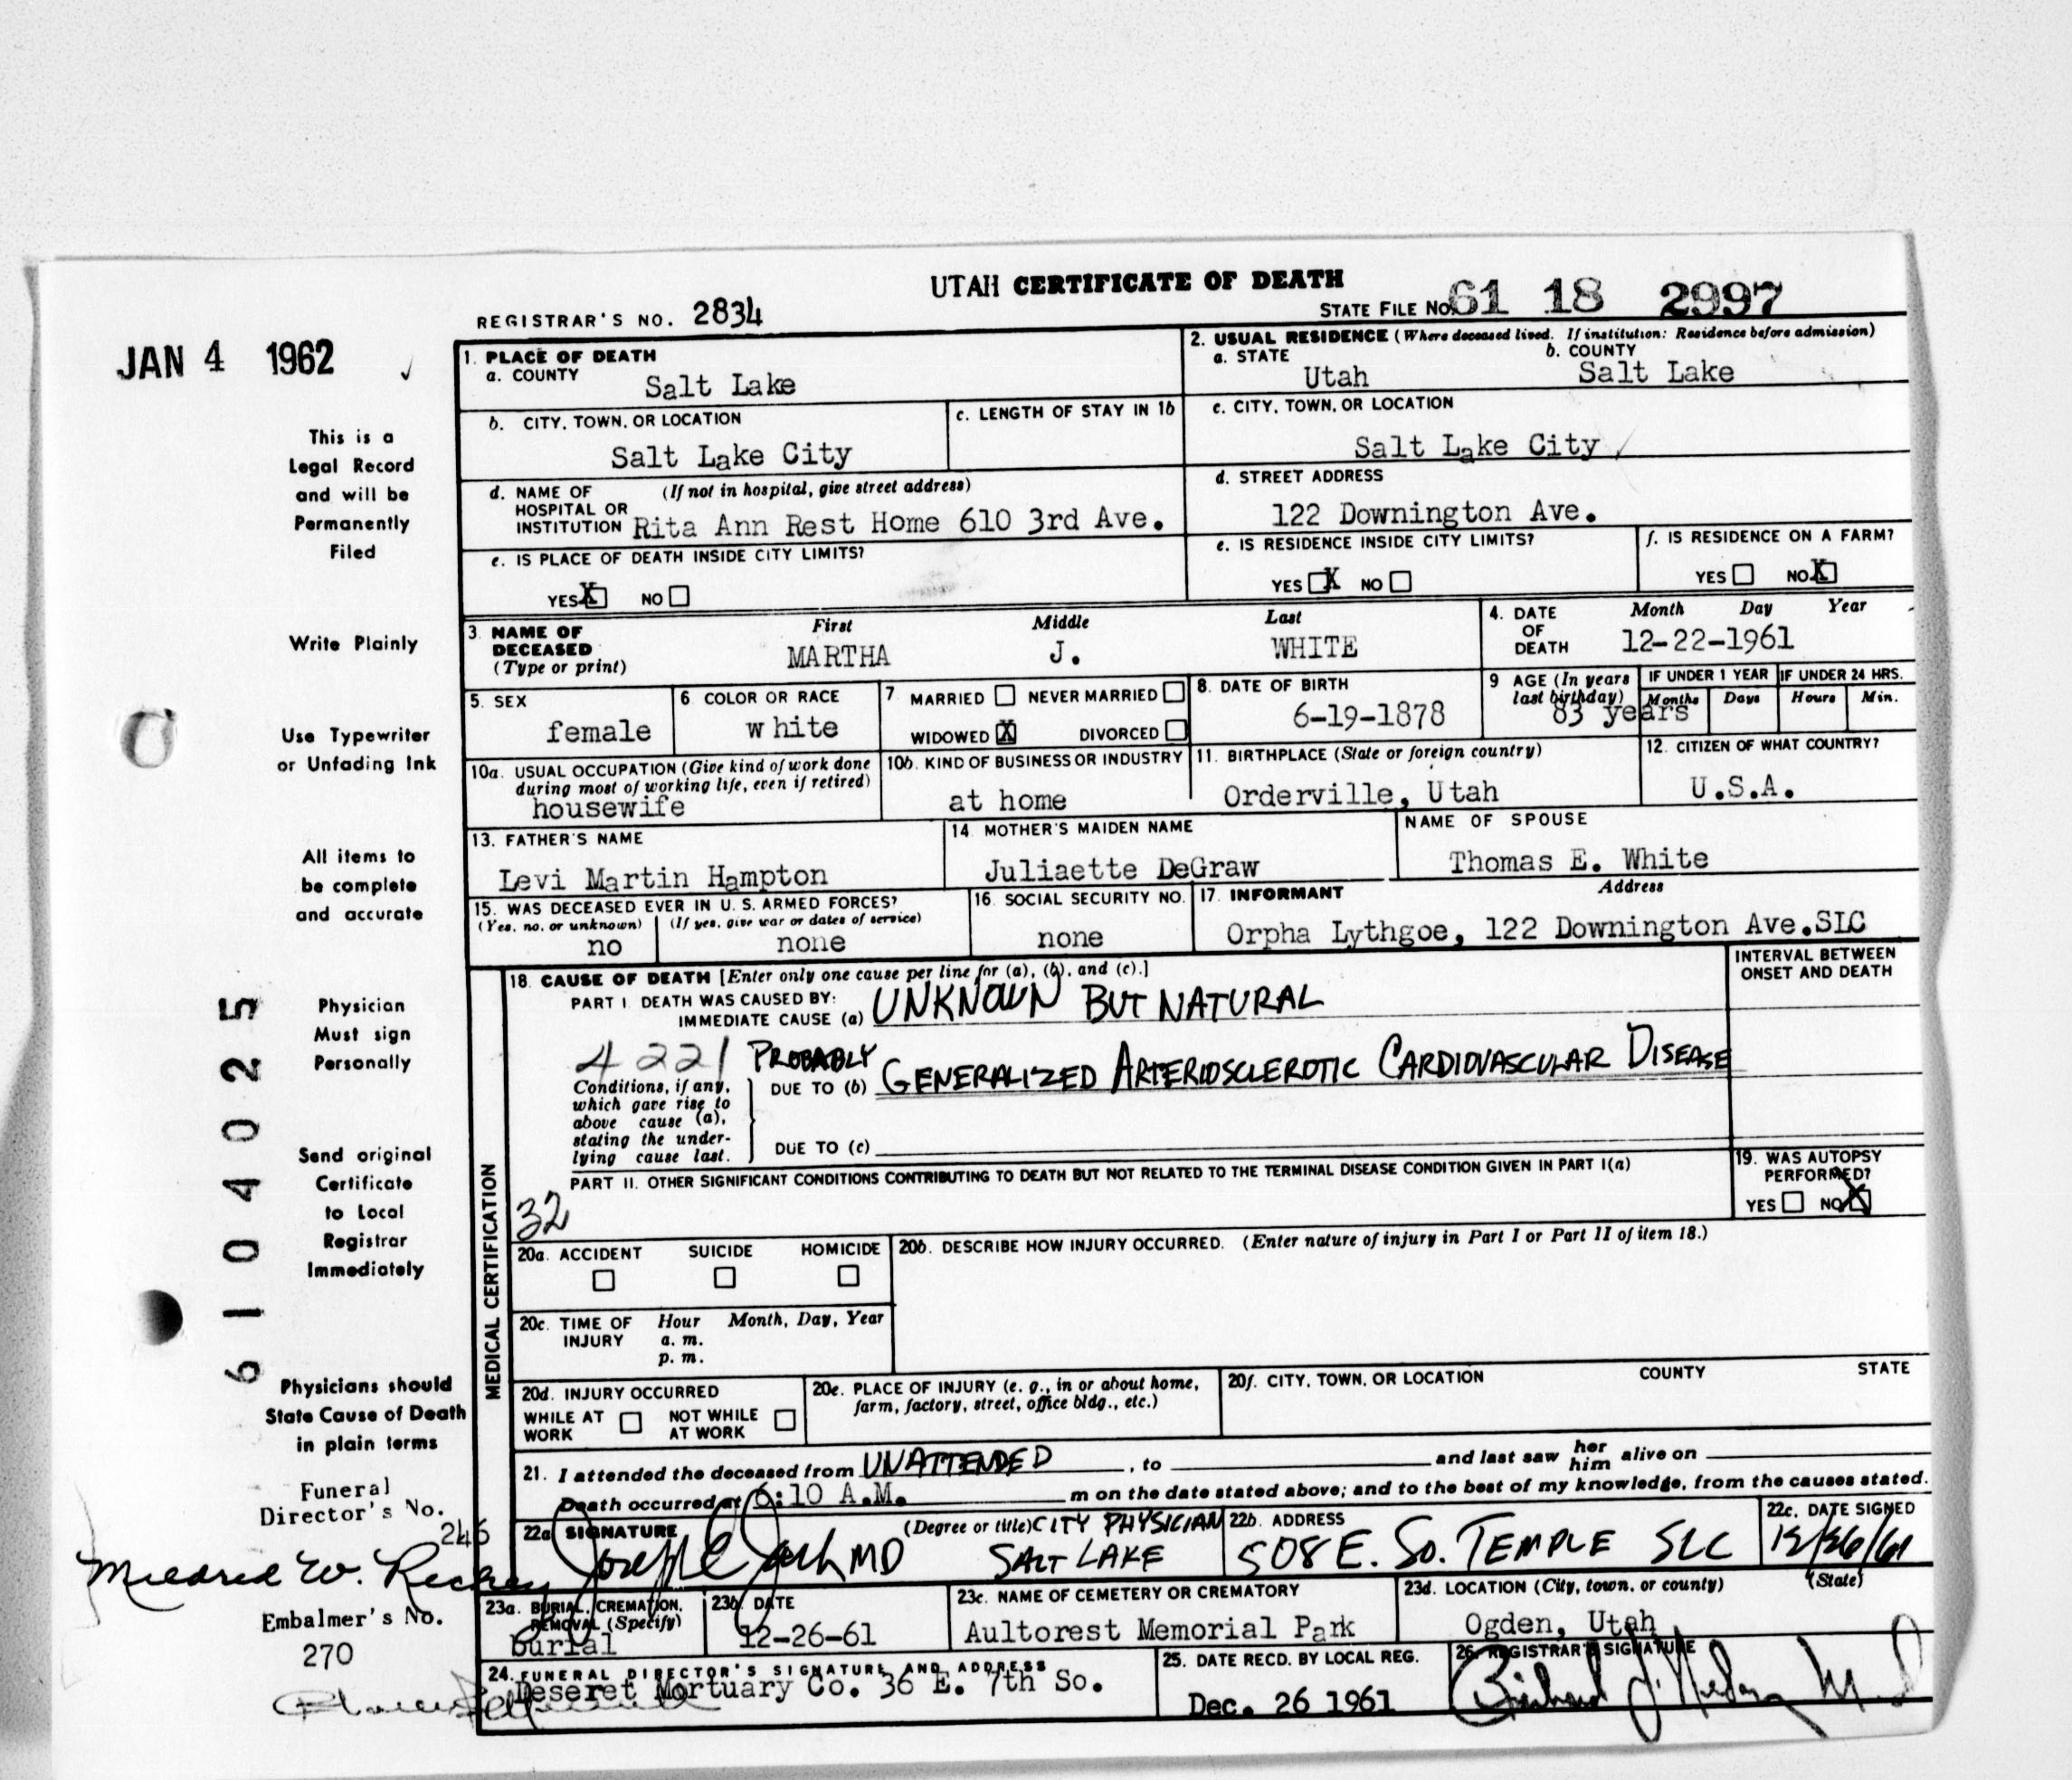 UTAH CERTIFICATE OF DEATH
REGISTRAR'S NO. 2834
STATE FILE NO. 61 18 2997
JAN 4 1962
This is a
Legal Record
and will be
Permanently
Filed
Write Plainly
Use Typewriter
or Unfading Ink
All items to
be complete
and accurate
Physician
Must sign
Personally
Send original
Certificate
to Local
Registrar
Immediately
Physicians should
State Cause of Death
in plain terms
Funeral
Director's No.
246
Mildred W.
Embalmer's No.
270
6104025
1. PLACE OF DEATH
a. COUNTY
Salt Lake
b. CITY, TOWN, OR LOCATION
Salt Lake City
c. LENGTH OF STAY IN 1b
d. NAME OF HOSPITAL OR INSTITUTION (If not in hospital, give street address)
Rita Ann Rest Home 610 3rd Ave.
e. IS PLACE OF DEATH INSIDE CITY LIMITS?
YES X NO
2. USUAL RESIDENCE (Where deceased lived. If institution: Residence before admission)
a. STATE
Utah
b. COUNTY
Salt Lake
c. CITY, TOWN, OR LOCATION
Salt Lake City
d. STREET ADDRESS
122 Downington Ave.
e. IS RESIDENCE INSIDE CITY LIMITS?
YES X NO
f. IS RESIDENCE ON A FARM?
YES NO X
3. NAME OF DECEASED (Type or print)
First Middle Last
MARTHA J. WHITE
4. DATE OF DEATH
Month Day Year
12-22-1961
5. SEX
female
6. COLOR OR RACE
w hite
7. MARRIED NEVER MARRIED
WIDOWED X DIVORCED
8. DATE OF BIRTH
6-19-1878
9 AGE (In years last birthday)
83 years
IF UNDER 1 YEAR
Months Days
IF UNDER 24 HRS.
Hours Min.
10a. USUAL OCCUPATION (Give kind of work done during most of working life, even if retired)
housewife
10b. KIND OF BUSINESS OR INDUSTRY
at home
11. BIRTHPLACE (State or foreign country)
Orderville, Utah
12. CITIZEN OF WHAT COUNTRY?
U.S.A.
13. FATHER'S NAME
Levi Martin Hampton
14. MOTHER'S MAIDEN NAME
Juliaette DeGraw
NAME OF SPOUSE
Thomas E. White
15. WAS DECEASED EVER IN U. S. ARMED FORCES?
(Yes, no, or unknown) (If yes, give war or dates of service)
no none
16. SOCIAL SECURITY NO.
none
17. INFORMANT Address
Orpha Lythgoe, 122 Downington Ave.SLC
MEDICAL CERTIFICATION
18. CAUSE OF DEATH [Enter only one cause per line for (a), (b), and (c).]
PART I. DEATH WAS CAUSED BY:
IMMEDIATE CAUSE (a) UNKNOWN BUT NATURAL
INTERVAL BETWEEN ONSET AND DEATH
4221 PROBABLY
Conditions, if any, which gave rise to above cause (a), stating the underlying cause last.
DUE TO (b) GENERALIZED ARTERIOSCLEROTIC CARDIOVASCULAR DISEASE
DUE TO (c)
PART II. OTHER SIGNIFICANT CONDITIONS CONTRIBUTING TO DEATH BUT NOT RELATED TO THE TERMINAL DISEASE CONDITION GIVEN IN PART I(a)
32
19. WAS AUTOPSY PERFORMED?
YES NO X
20a. ACCIDENT SUICIDE HOMICIDE
20b. DESCRIBE HOW INJURY OCCURRED. (Enter nature of injury in Part I or Part II of item 18.)
20c. TIME OF INJURY
Hour Month, Day, Year
a. m.
p. m.
20d. INJURY OCCURRED
WHILE AT WORK NOT WHILE AT WORK
20e. PLACE OF INJURY (e. g., in or about home, farm, factory, street, office bldg., etc.)
20f. CITY, TOWN, OR LOCATION COUNTY STATE
21. I attended the deceased from UNATTENDED , to and last saw her him alive on
Death occurred at 6:10 A.M. m on the date stated above; and to the best of my knowledge, from the causes stated.
22a. SIGNATURE (Degree or title) CITY PHYSICIAN
Joseph MD SALT LAKE
22b. ADDRESS
508 E. SO. TEMPLE SLC
22c. DATE SIGNED
12/26/61
23a. BURIAL, CREMATION, REMOVAL (Specify)
burial
23b. DATE
12-26-61
23c. NAME OF CEMETERY OR CREMATORY
Aultorest Memorial Park
23d. LOCATION (City, town, or county) (State)
Ogden, Utah
24. FUNERAL DIRECTOR'S SIGNATURE AND ADDRESS
Deseret Mortuary Co. 36 E. 7th So.
25. DATE RECD. BY LOCAL REG.
Dec. 26 1961
26. REGISTRAR'S SIGNATURE